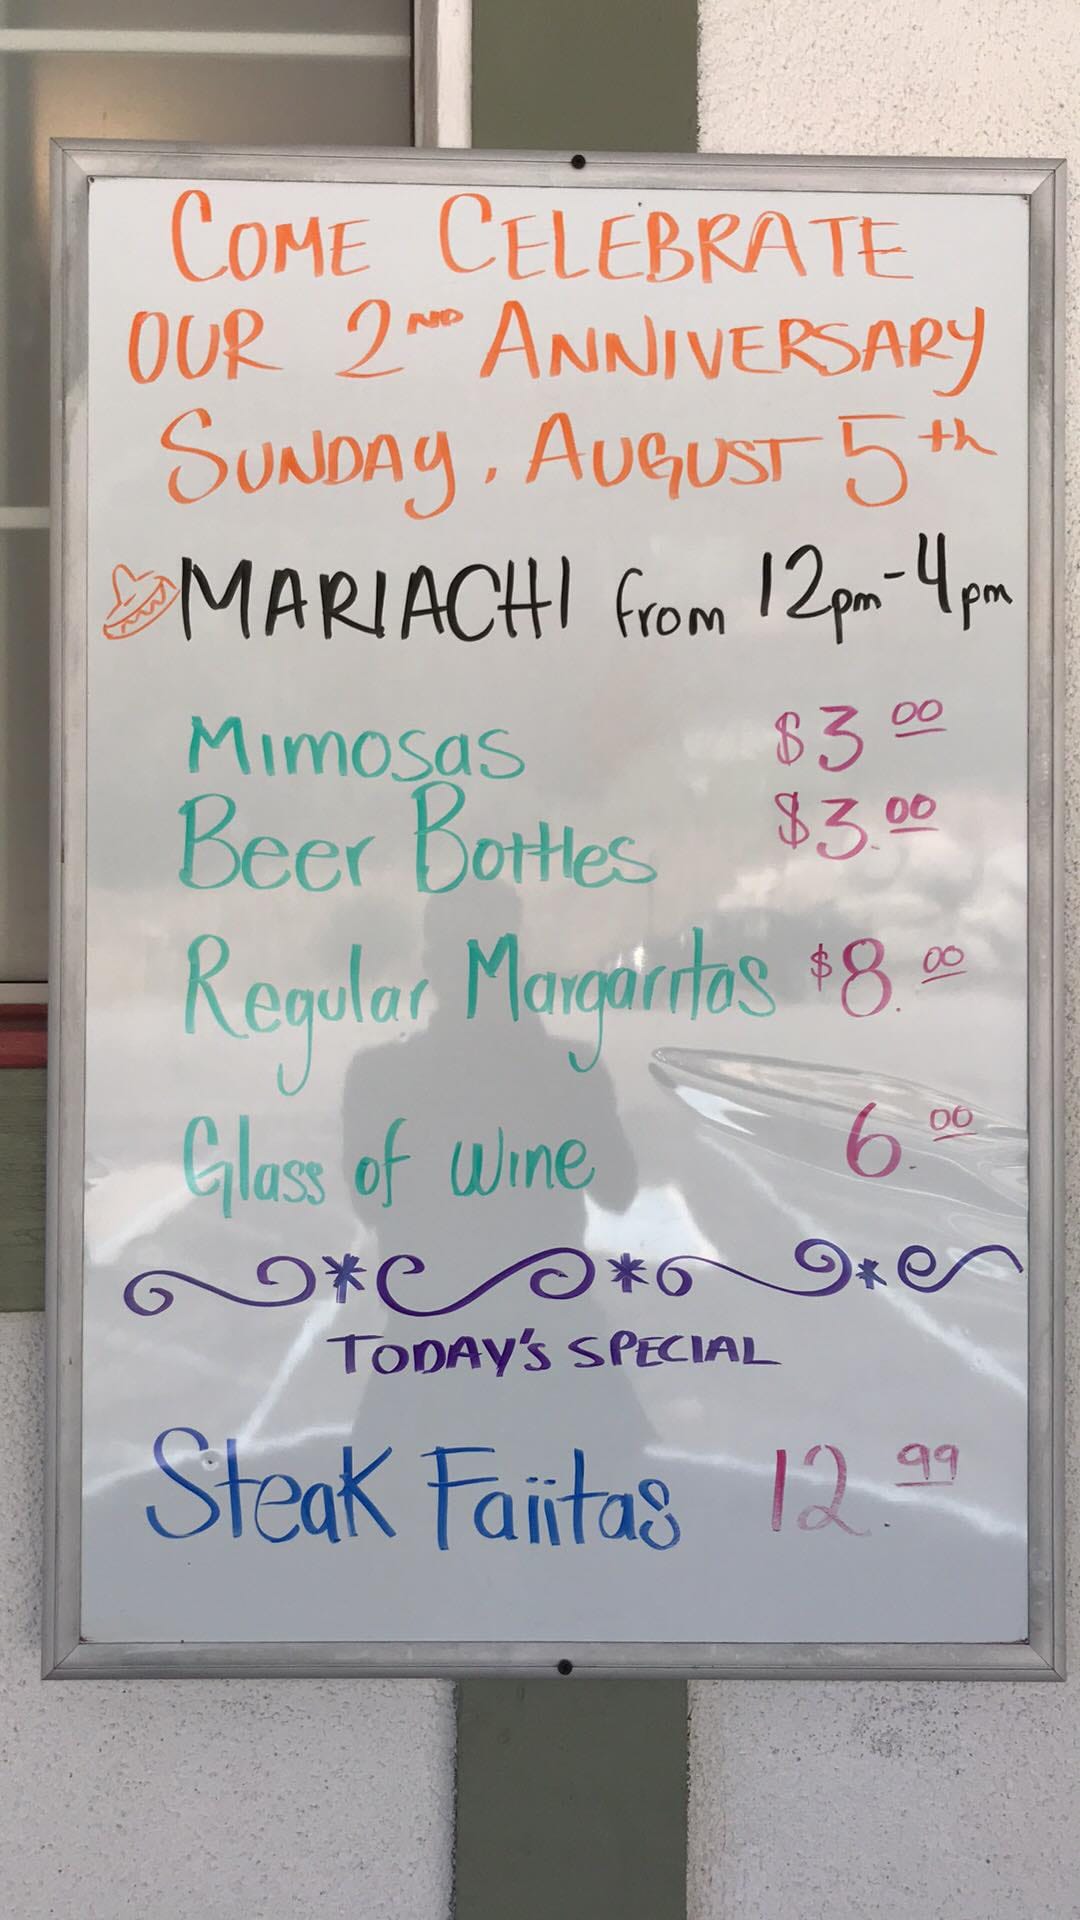 COME CELEBRATE
OUR 2ND ANNIVERSARY
SUNDAY, AUGUST 5th
MARIACHI from 12pm-4pm
Mimosas $3 00
Beer Bottles $3.00
Regular Margaritas $8.00
Glass of Wine 6.00
TODAY'S SPECIAL
Steak Faiitas 12.99